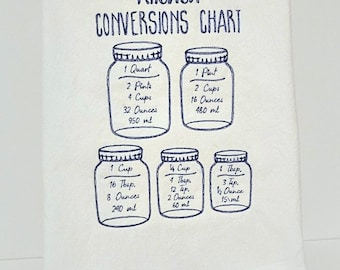 KITCHEN
CONVERSIONS CHART
1 Quart
2 Pints
4 Cups
32 Ounces
950 ml
1 Pint
2 Cups
16 Ounces
480 ml
1 Cup
16 Tbsp.
8 Ounces
240 ml
¼ Cup
4 Tbsp.
12 Tsp.
2 Ounces
60 ml
1 Tbsp.
3 Tsp.
½ Ounce
15 ml